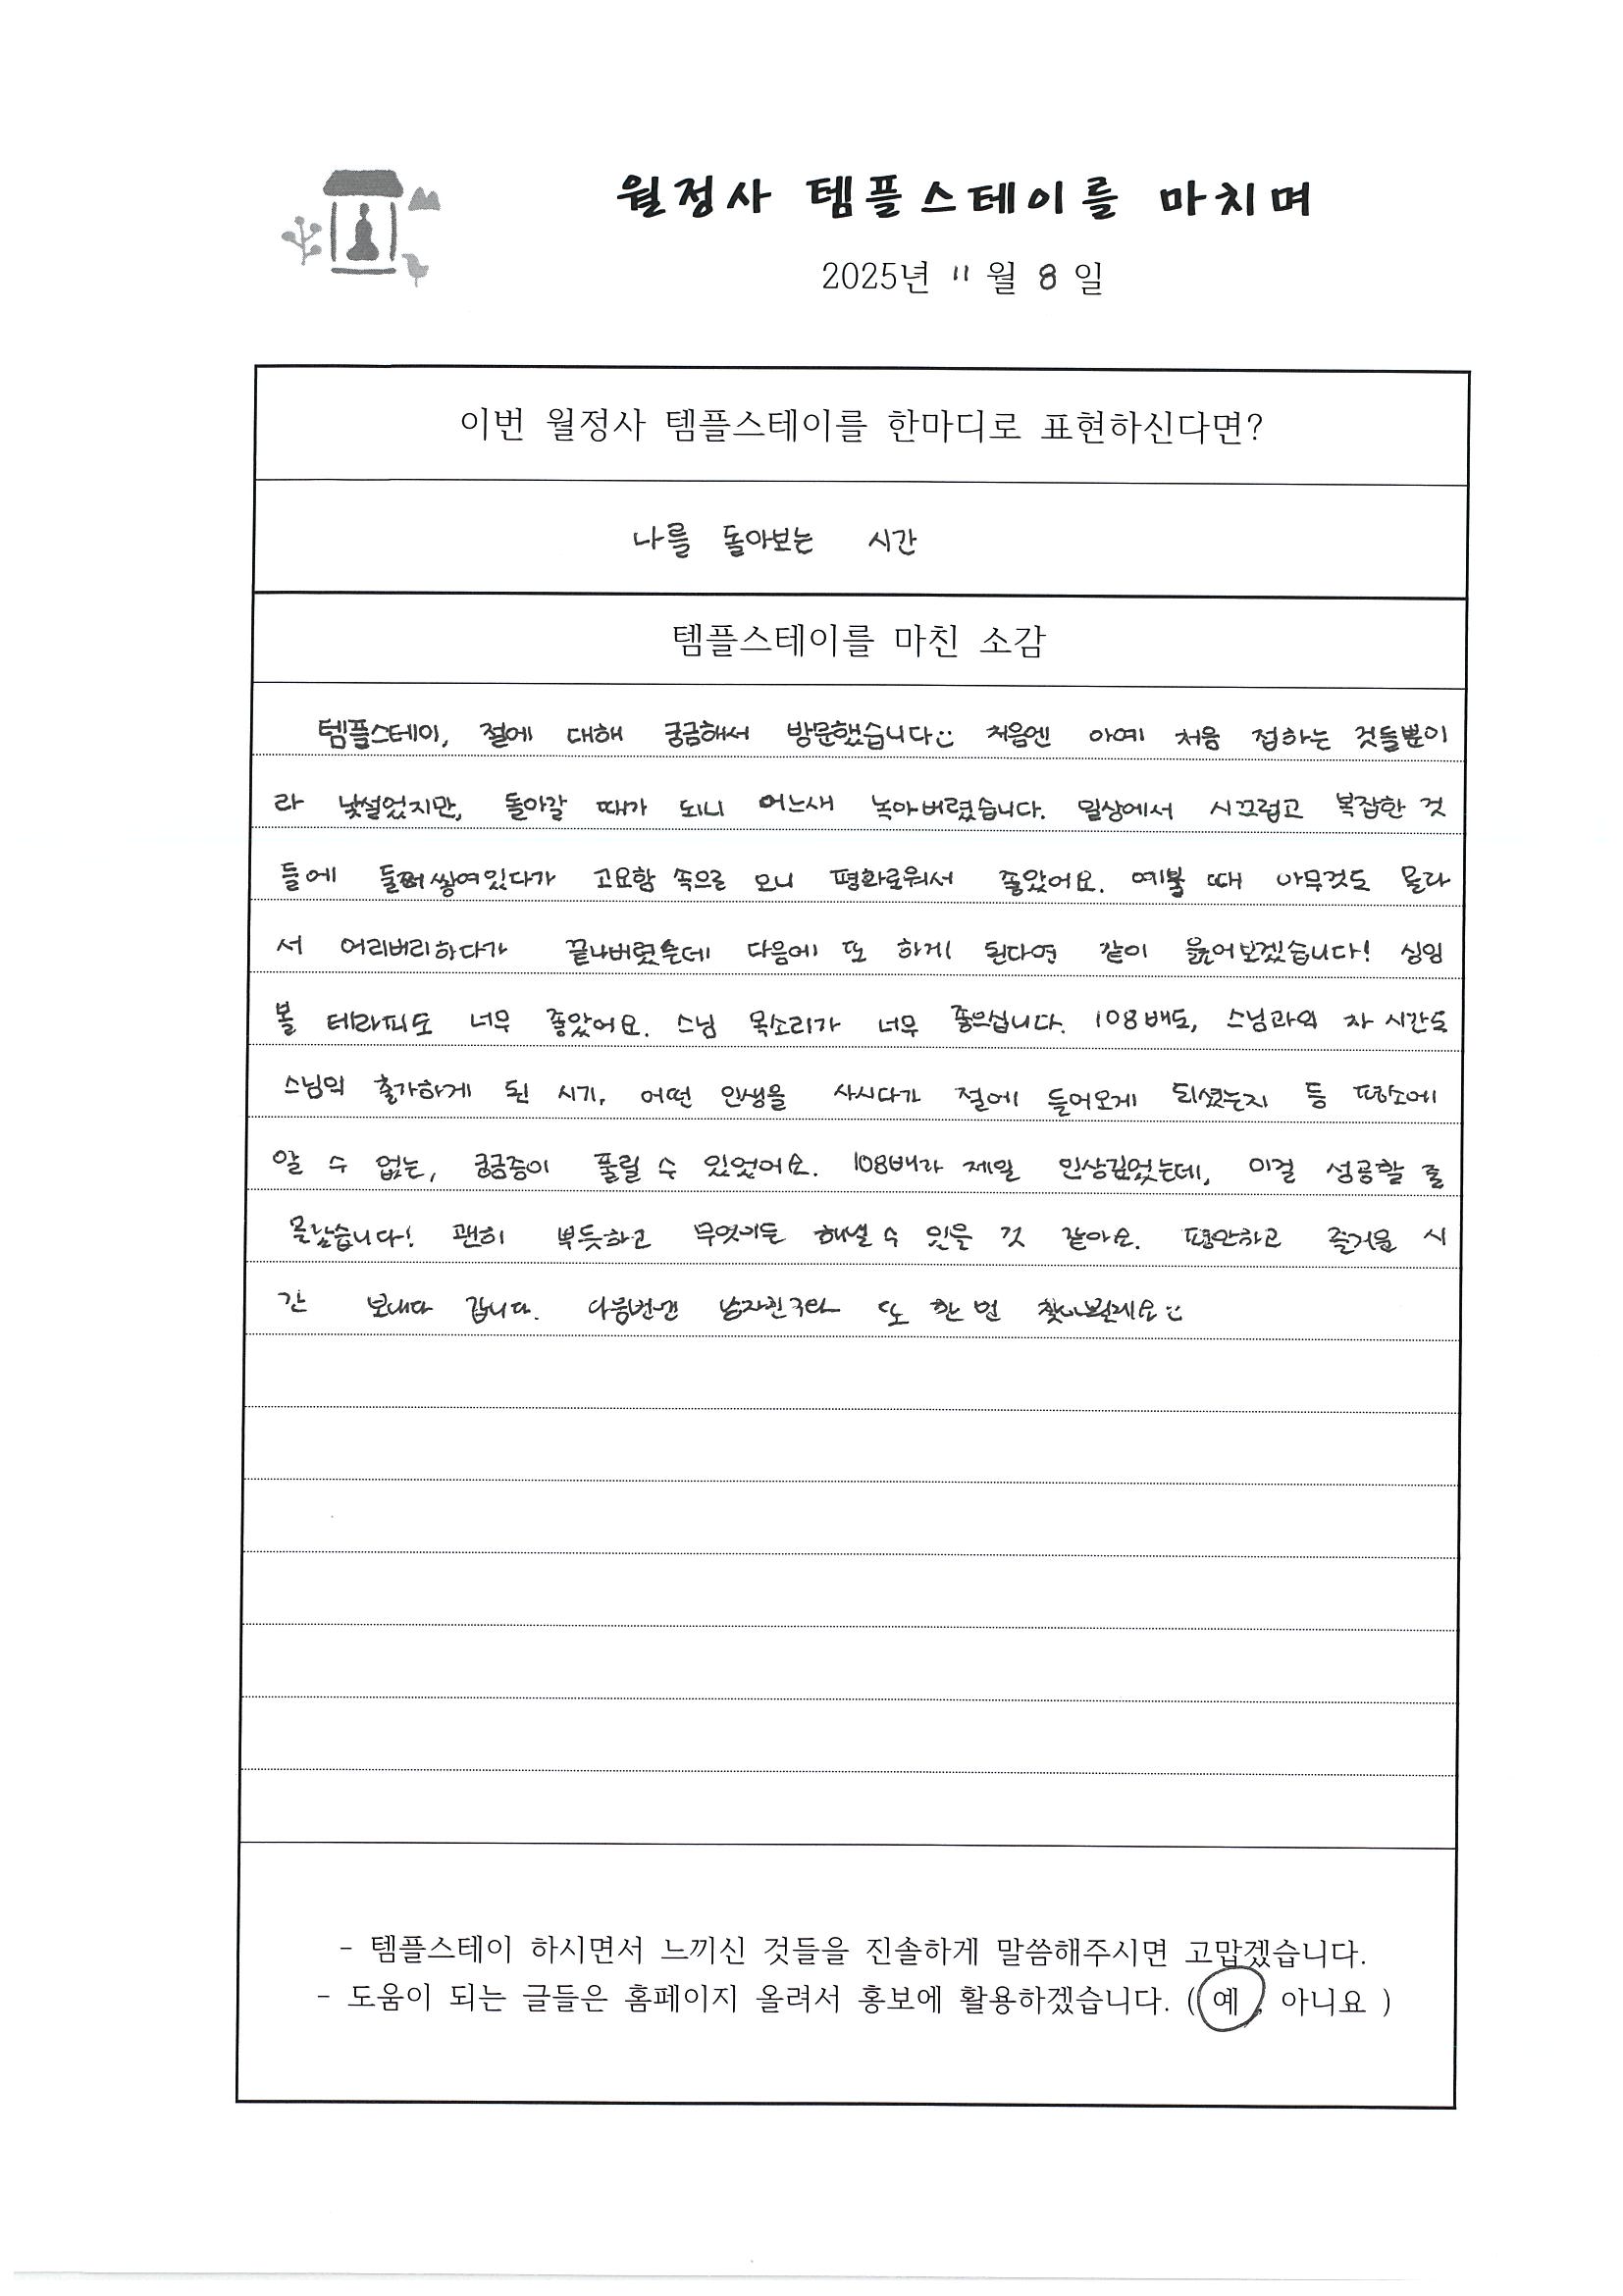 월정사 템플스테이를 마치며
2025년 11월 8일
이번 월정사 템플스테이를 한마디로 표현하신다면?
나를 돌아보는 시간
템플스테이를 마친 소감
템플스테이, 절에 대해 궁금해서 방문했습니다 처음엔 아예 처음 접하는 것들뿐이
라 낯설었지만, 돌아갈 때가 되니 어느새 녹아버렸습니다. 일상에서 시끄럽고 복잡한 것
들에 둘러쌓여있다가 고요함 속으로 오니 평화로워서 좋았어요. 예불 때 아무것도 몰라
서 어리버리하다가 끝나버렸는데 다음에 또 하게 된다면 같이 읊어보겠습니다! 싱잉
볼 테라피도 너무 좋았어요. 스님 목소리가 너무 좋으십니다. 108배도, 스님과의 차 시간도
스님의 출가하게 된 시기, 어떤 인생을 사시다가 절에 들어오게 되셨는지 등 평소에
알 수 없는, 궁금증이 풀릴 수 있었어요. 108배가 제일 인상깊었는데, 이걸 성공할 줄
몰랐습니다! 괜히 뿌듯하고 무엇이든 해낼 수 있을 것 같아요. 평안하고 즐거운 시
간 보내다 갑니다. 다음번엔 남자친구랑 또 한 번 찾아뵐게요
- 템플스테이 하시면서 느끼신 것들을 진솔하게 말씀해주시면 고맙겠습니다.
- 도움이 되는 글들은 홈페이지 올려서 홍보에 활용하겠습니다. ( 예 , 아니요 )